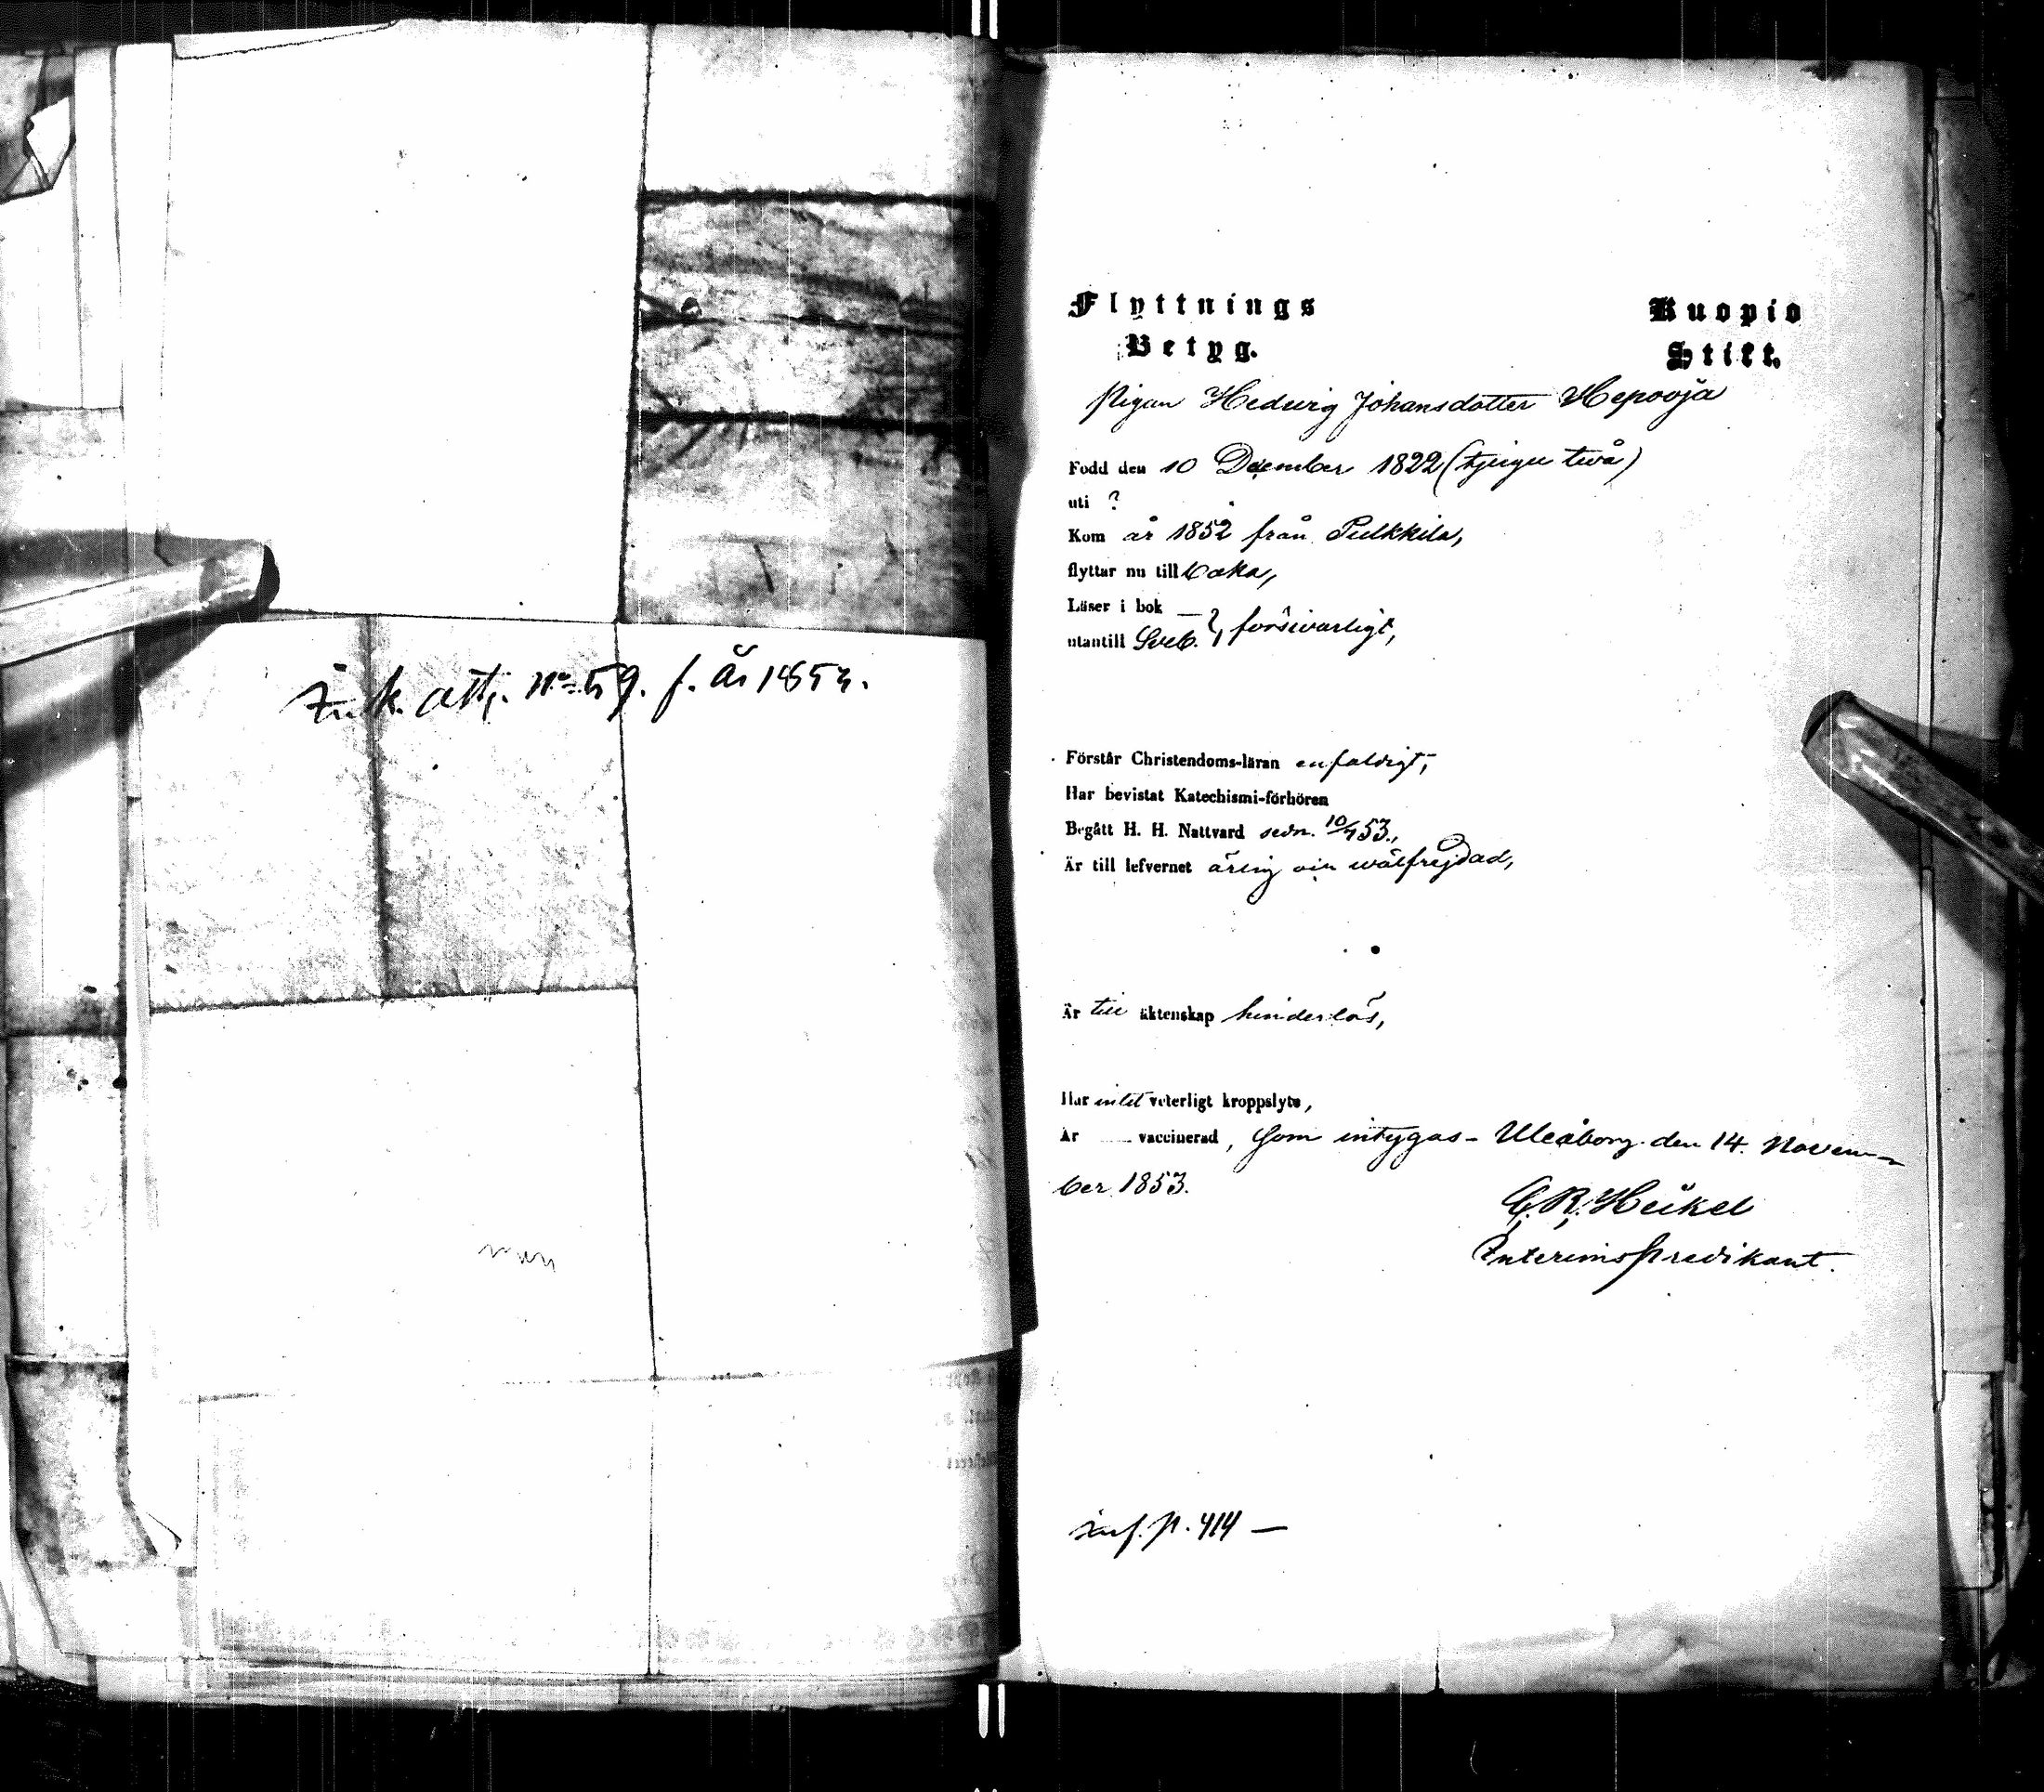 Ink. att. No 59. f. år 1853.
Flyttnings Betyg.
Kuopio Stift.
Pigan Hedwig Johansdotter Hepooja
Född den 10 December 1822 (tjugu två)
uti ?
Kom år 1852 från Pulkkila,
flyttar nu till
Läser i bok —
utantill Sveb. ?, försvarligt,
Förstår Christendoms-läran enfaldigt,
Har bevistat Katechismi-förhören
Begått H. H. Nattvard sedn. 10/7 53.,
Är till lefvernet ärlig och wälfrejdad,
Är till äktenskap hinderlös,
Har intet veterligt kroppslyte,
Är — vaccinerad, Som intygas – Uleåborg den 14. Novem-
ber 1853.
C. R. Heikel
Interimspredikant.
Inf. p. 414 —